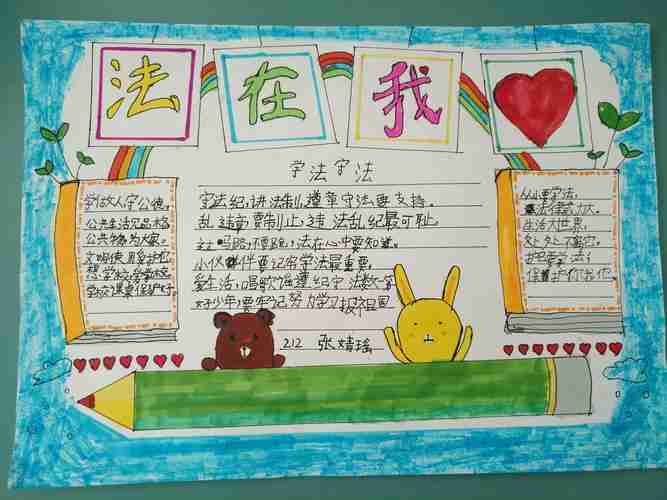 法在我
学法守法
守法纪,讲法制,遵章守法要支持。
乱 违章要制止,违 法乱纪最可耻,
马路,不要跑,法在心中要知道。
小伙伴要记牢学法最重要,
爱生活,唱歌谣遵纪守法
好少年要牢记努力学习报祖国
212 张婧瑶
学做人守公德,
公共生活
公共 为大家。
文明使用要护
想学校,爱学校
学校课桌保护好
从小要学法,
法律 力大。
生活大世界,
处处不离它。
护我你他。